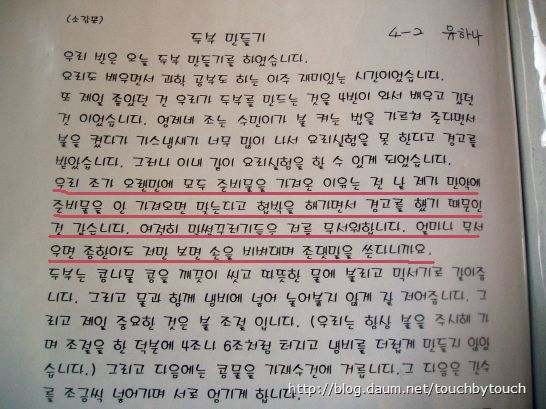 (소감문)
두부 만들기
4-2 유하나
우리 반은 오늘 두부 만들기를 하였습니다.
요리도 배우면서 과학 공부도 하는 아주 재미있는 시간이었습니다.
또 제일 좋았던 건 우리가 두부를 만드는 것을 4반이 와서 배우고 갔던
것 이었습니다. 영제네 조는 수민이가 불 켜는 법을 가르쳐 준다면서
불을 켰다가 가스냄새가 너무 많이 나서 요리실험을 못 한다고 경고를
받았습니다. 그러나 이내 같이 요리실험을 할 수 있게 되었습니다.
우리 조가 오랜만에 모두 준비물을 가져온 이유는 전 날 제가 만약에
준비물을 안 가져오면 맞는다고 협박을 해가면서 경고를 했기 때문인
것 같습니다. 여전히 말썽꾸러기들은 저를 무서워합니다. 얼마나 무서
우면 종한이도 저만 보면 손을 비벼대며 존댓말을 쓴다니까요.
두부는 콩나물 콩을 깨끗이 씻고 따뜻한 물에 불리고 믹서기로 갈아줍
니다. 그리고 물과 함께 냄비에 넣어 눌어붙지 않게 잘 저어줍니다. 그
리고 제일 중요한 것은 불 조절 입니다. (우리는 항상 불을 주시해 가
며 조절을 한 덕분에 4조나 6조처럼 터지고 냄비를 더럽게 만들지 않았
습니다.) 그리고 다음에는 콩물을 가제수건에 거릅니다. 그 다음은 간수
를 조금씩 넣어가며 서로 엉기게 합니다.
http://blog.daum.net/touchbytouch